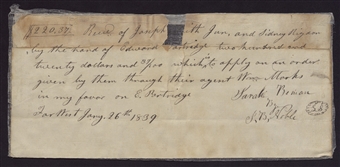 $220.37. Recd of Joseph Smith Jun. and Sidney Rigdon
by the hand of Edward Partridge two hundred and
twenty dollars and 37/100 which is to apply on an order
given by them through their agent Wm Marks
in my favor on E. Partridge
Sarah Beman
Far West Jany. 26th 1839
by
S. B. Noble